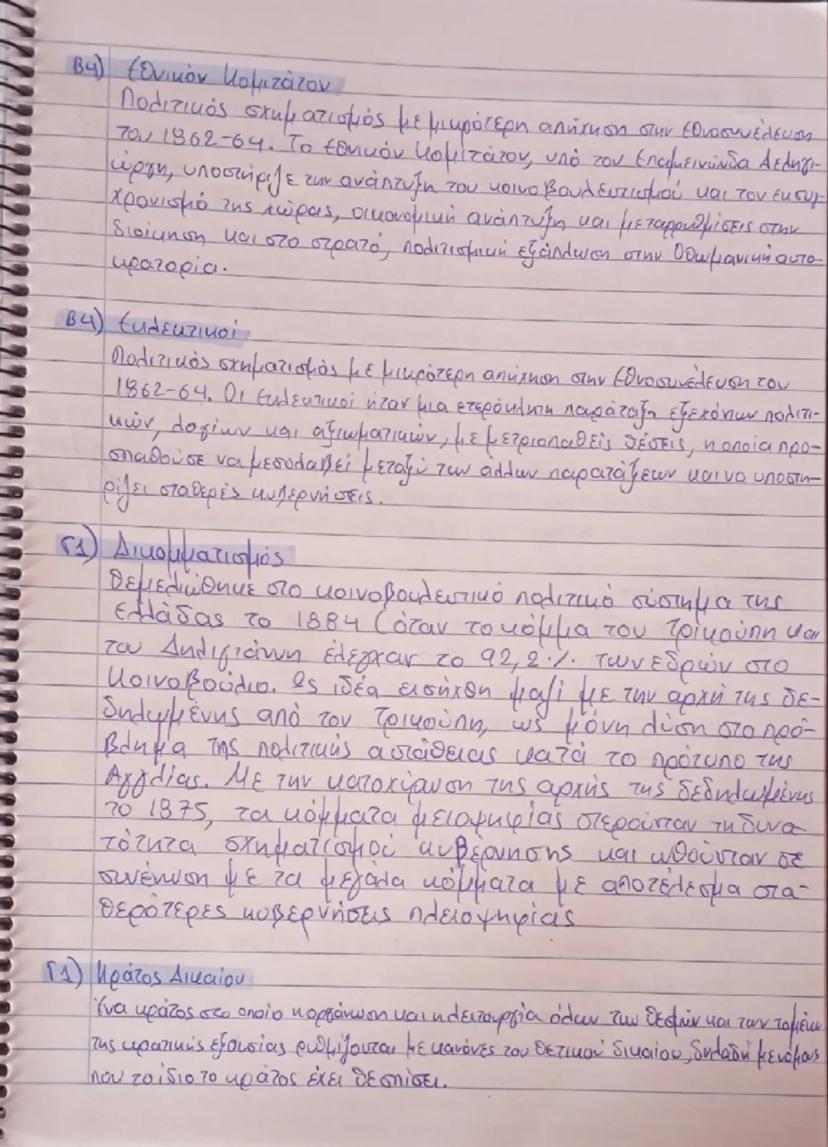 Β4) Εθνικόν Κομιτάτον
Πολιτικός σχηματισμός με μικρότερη απήχηση στην Εθνοσυνέλευση
του 1862-64. Το Εθνικόν Κομιτάτον, υπό τον Επαμεινώνδα Δεληγι-
ώργη, υποστήριζε την ανάπτυξη του κοινοβουλευτισμού και τον εκσυγ-
χρονισμό της χώρας, οικονομική ανάπτυξη και μεταρρυθμίσεις στην
διοίκηση και στο στρατό, πολιτισμική εξάπλωση στην Οθωμανική αυτο-
κρατορία.
Β4) Εκλεκτικοί
Πολιτικός σχηματισμός με μικρότερη απήχηση στην Εθνοσυνέλευση του
1862-64. Οι Εκλεκτικοί ήταν μια ετερόκλητη παράταξη εξεχόντων πολιτι-
κών, λογίων και αξιωματικών, με μετριοπαθείς θέσεις, η οποία προ-
σπαθούσε να μεσολαβεί μεταξύ των άλλων παρατάξεων και να υποστη-
ρίζει σταθερές κυβερνήσεις.
Γ1) Δικομματισμός
Θεμελιώθηκε στο κοινοβουλευτικό πολιτικό σύστημα της
Ελλάδας το 1884 (όταν το κόμμα του Τρικούπη και
του Δηλιγιάννη έλεγχαν το 92,2% των εδρών στο
Κοινοβούλιο. Ως ιδέα εισήχθη μαζί με την αρχή της δε-
δηλωμένης από τον Τρικούπη, ως μόνη λύση στο πρό-
βλημα της πολιτικής αστάθειας κατά το πρότυπο της
Αγγλίας. Με την κατοχύρωση της αρχής της δεδηλωμένης
το 1875, τα κόμματα μειοψηφίας στερούνταν τη δυνα-
τότητα σχηματισμού κυβέρνησης και ωθούνταν σε
συνένωση με τα μεγάλα κόμματα με αποτέλεσμα στα-
θερότερες κυβερνήσεις πλειοψηφίας
Γ1) Κράτος Δικαίου
Ένα κράτος στο οποίο η οργάνωση και η λειτουργία όλων των θεσμών και των τομέων
της κρατικής εξουσίας ρυθμίζονται με κανόνες του θετικού δικαίου, δηλαδή με νόμους
που το ίδιο το κράτος έχει θεσπίσει.